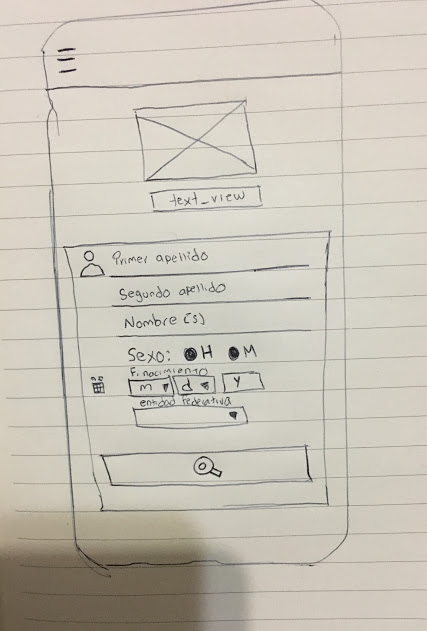 text_view
Primer apellido
Segundo apellido
Nombre(s)
Sexo: H M
F. nacimiento
m d y
entidad Federativa